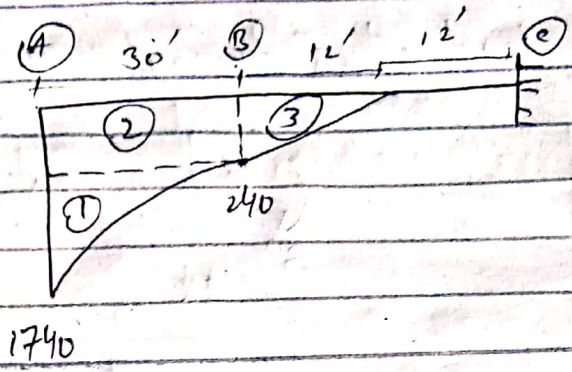 A 30' B 12' 12' C
2 3
1 240
1740